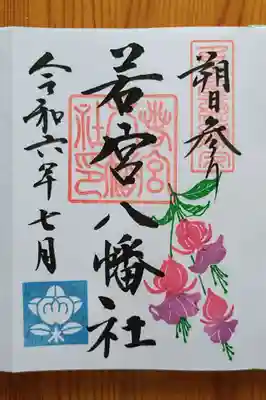 朔日参り
若宮八幡社
令和六年七月